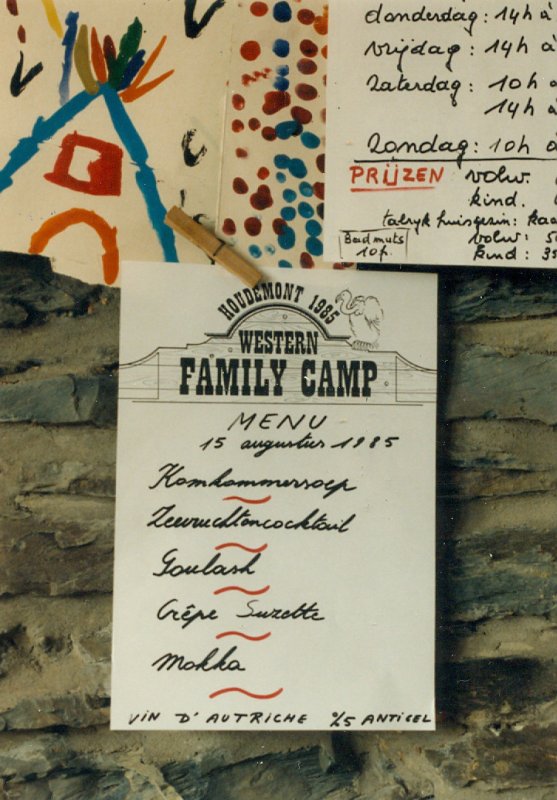 donderdag: 14h à
vrijdag: 14h à
zaterdag: 10h à
14h à
zondag: 10h à
PRIJZEN volw.
kind.
talryk huisgezin:
Badmuts
10f.
volw: 50
kind: 35
HOUDEMONT 1985
WESTERN
FAMILY CAMP
MENU
15 augustus 1985
Komkommersoep
Zeevruchtencocktail
Goulash
Crêpe Suzette
Mokka
VIN D'AUTRICHE